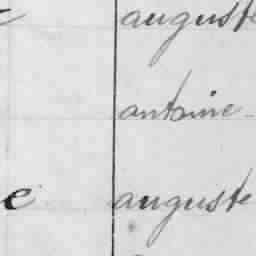 auguste
antoine
e auguste